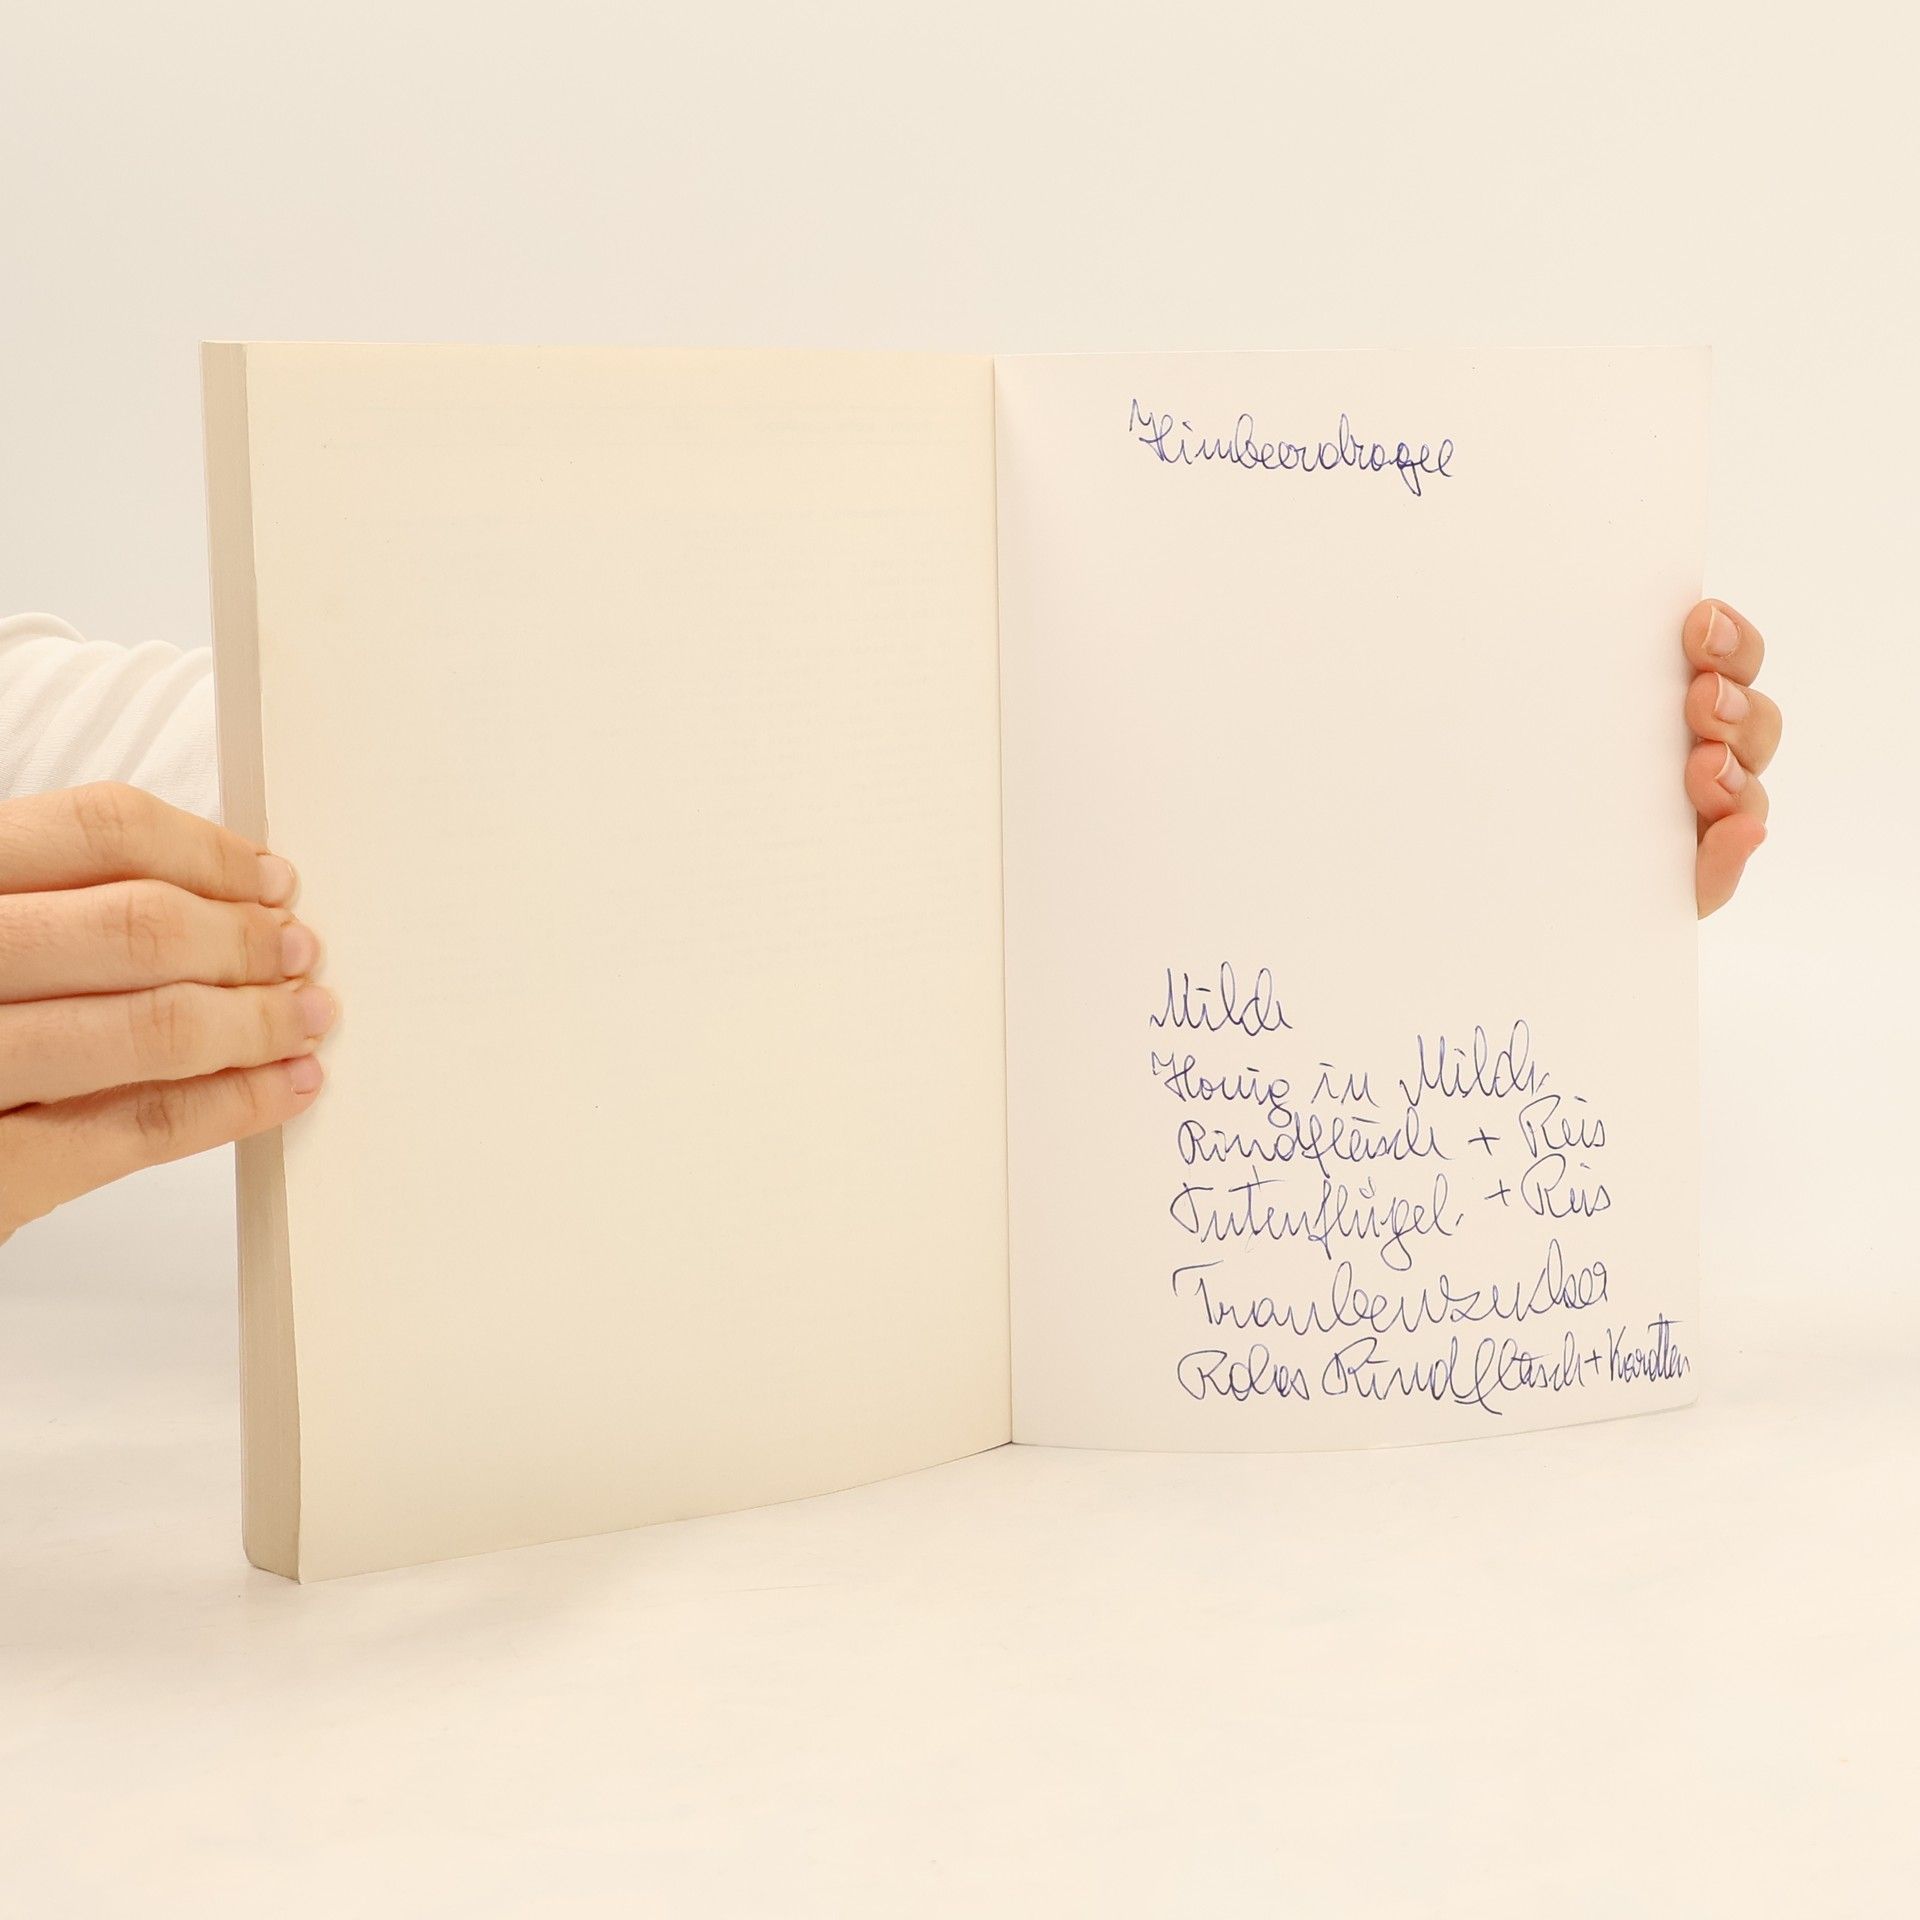 Himbeerdragee
Milch
Honig in Milch.
Rindfleisch + Reis
Putenflügel. + Reis
Traubenzucker
Rohes Rindfleisch + Karotten